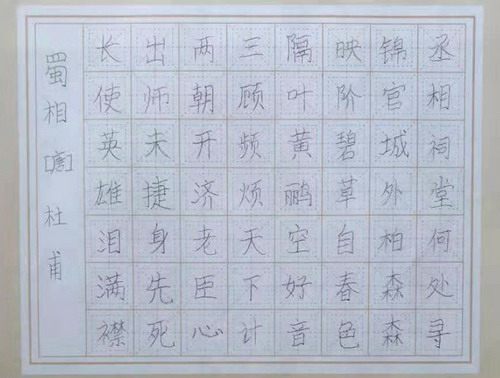 蜀相 [唐] 杜甫
丞相祠堂何处寻
锦官城外柏森森
映阶碧草自春色
隔叶黄鹂空好音
三顾频烦天下计
两朝开济老臣心
出师未捷身先死
长使英雄泪满襟